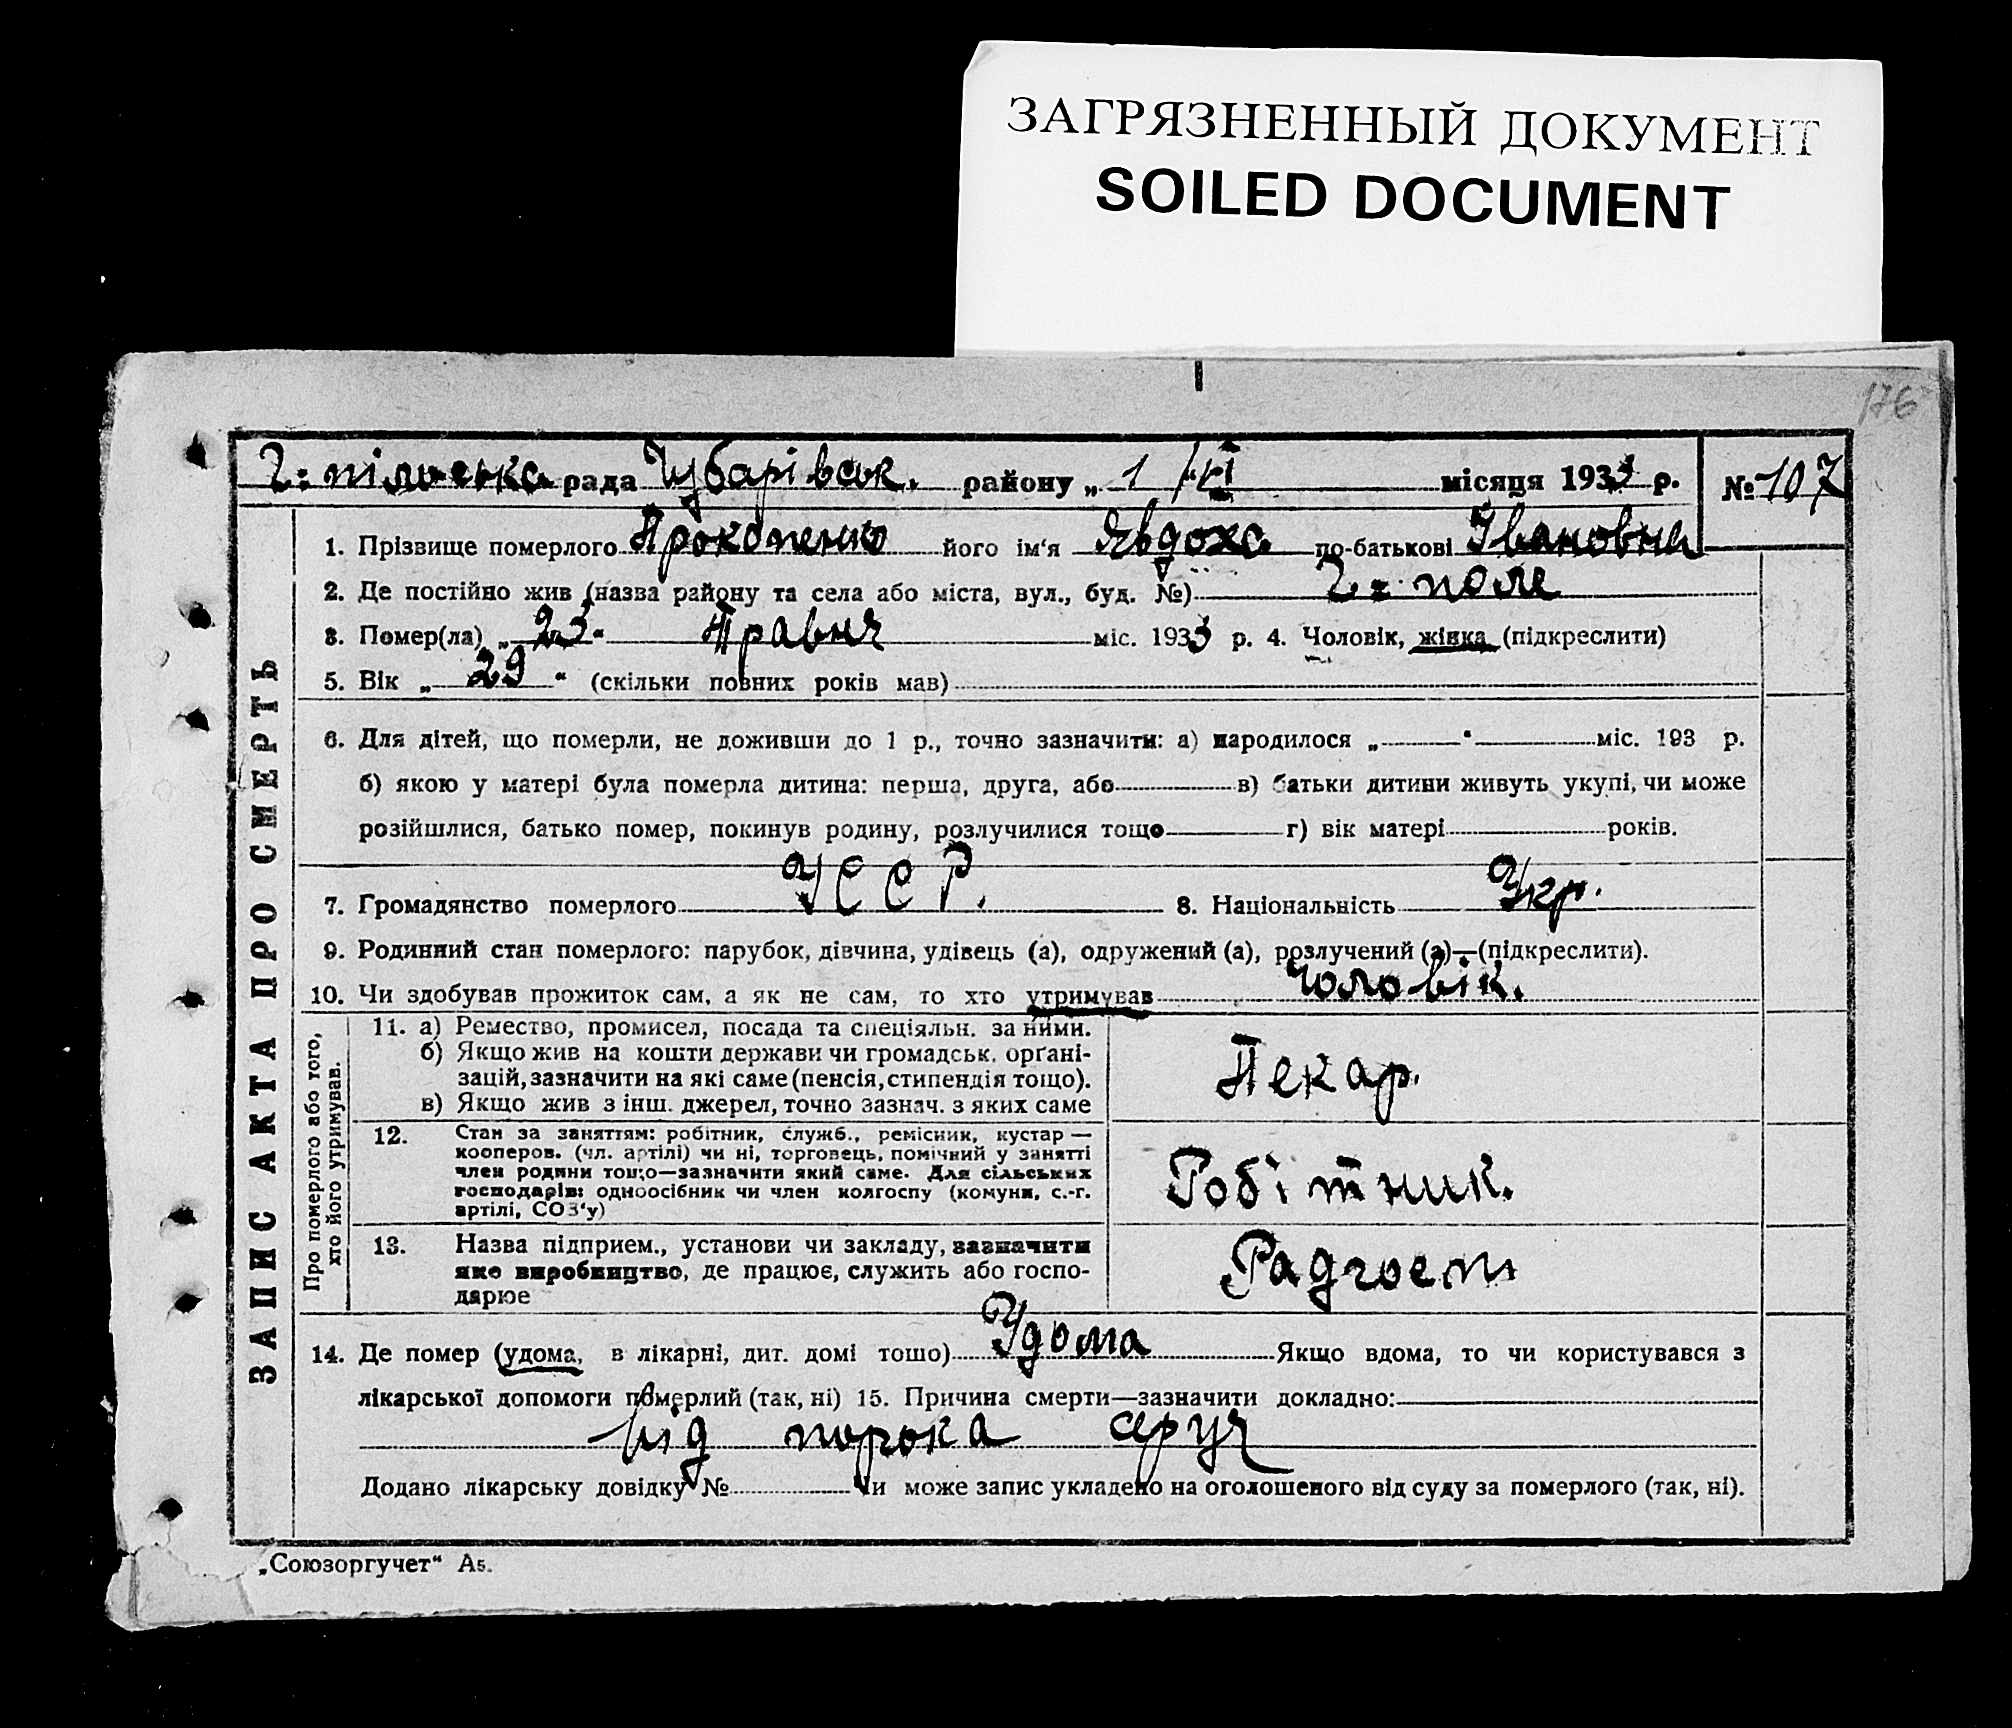 ЗАГРЯЗНЕННЫЙ ДОКУМЕНТ
SOILED DOCUMENT
176
Г: пільська рада Чубарівськ. району „ 1 /VI місяця 1933 р. № 107
ЗАПИС АКТА ПРО СМЕРТЬ
1. Прізвище померлого Прокопенко його ім'я Явдоха по-батькові Івановна
2. Де постійно жив (назва району та села або міста, вул., буд. №) Г: поле
3. Помер(ла) „ 23 “ Травня міс. 1933 р. 4. Чоловік, жінка (підкреслити)
5. Вік „ 29 “ (скільки повних років мав)
6. Для дітей, що померли, не доживши до 1 р., точно зазначити: а) народилося „ “ міс. 193 р.
б) якою у матері була померла дитина: перша, друга, або в) батьки дитини живуть укупі, чи може
розійшлися, батько помер, покинув родину, розлучилися тощо г) вік матері років.
7. Громадянство померлого УССР. 8. Національність Укр.
9. Родинний стан померлого: парубок, дівчина, удівець (а), одружений (а), розлучений (а)—(підкреслити).
10. Чи здобував прожиток сам, а як не сам, то хто утримував Чоловік.
Про померлого або того, хто його утримував.
11. а) Ремество, промисел, посада та спеціяльн. за ними.
б) Якщо жив на кошти держави чи громадськ. орґані-
зацій, зазначити на які саме (пенсія, стипендія тощо).
в) Якщо жив з інш. джерел, точно зазнач. з яких саме
Пекар.
12. Стан за заняттям: робітник, служб., ремісник, кустар —
кооперов. (чл. артілі) чи ні, торговець, помічний у занятті
член родини тощо—зазначити який саме. Для сільських
господарів: одноосібник чи член колгоспу (комуни, с.-г.
артілі, СОЗ'у)
Робітник.
13. Назва підприєм., установи чи закладу, зазначити
яке виробництво, де працює, служить або госпо-
дарює
Радгосп
14. Де помер (удома, в лікарні, дит. домі тошо) Удома Якщо вдома, то чи користувався з
лікарської допомоги померлий (так, ні) 15. Причина смерти—зазначити докладно:
від порока серця
Додано лікарську довідку № Чи може запис укладено на оголошеного від суду за померлого (так, ні).
„Союзоргучет“ А5.